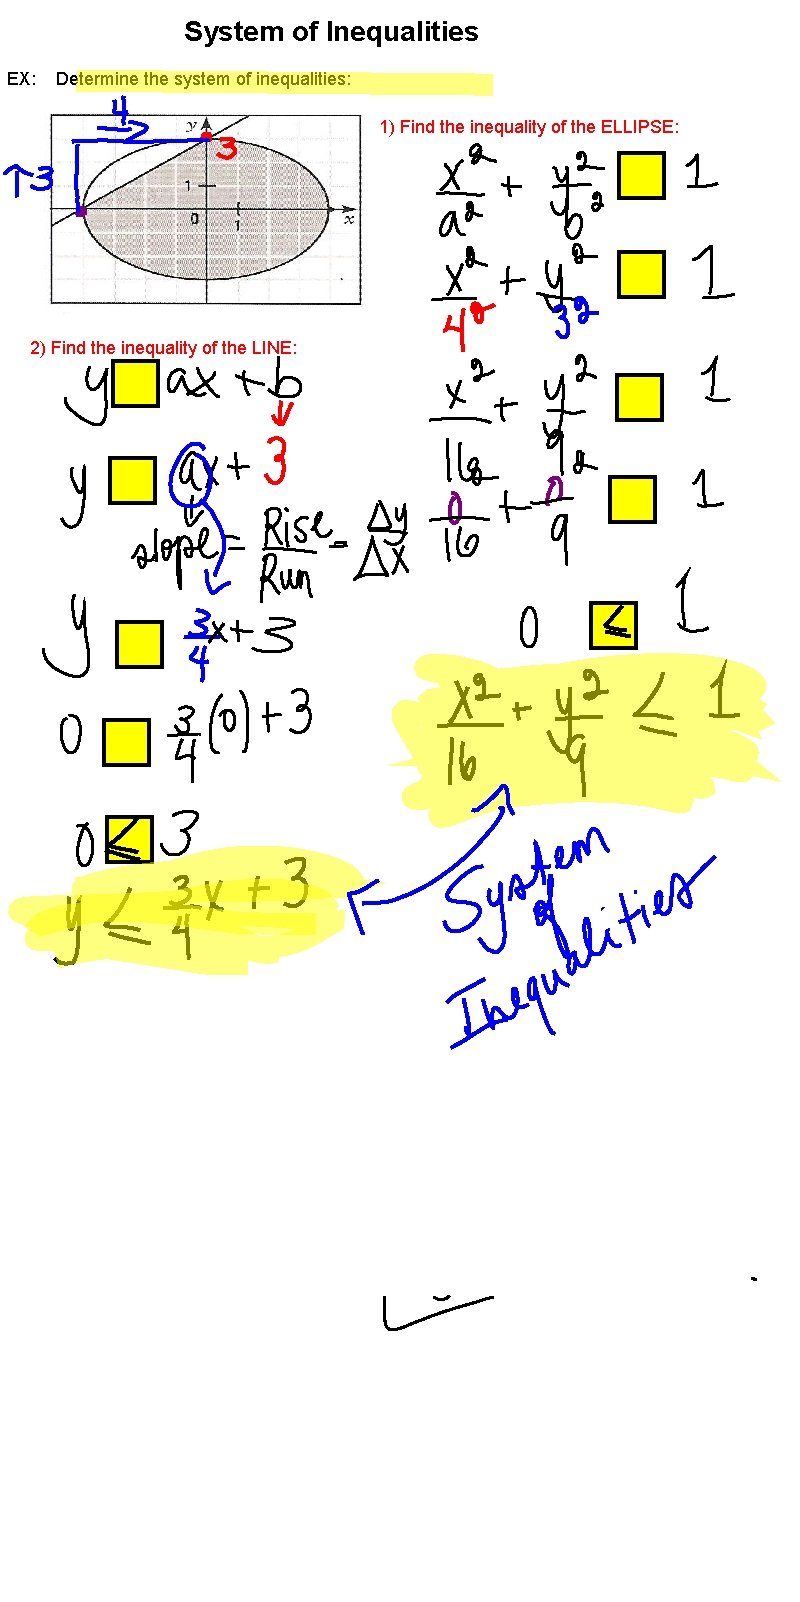 System of Inequalities
EX: Determine the system of inequalities:
4
↑3
y
3
1
0
1
x
1) Find the inequality of the ELLIPSE:
x²/a² + y²/b² □ 1
x²/4² + y²/3² □ 1
x²/16 + y²/9 □ 1
0²/16 + 0²/9 □ 1
0 ≤ 1
x²/16 + y²/9 ≤ 1
2) Find the inequality of the LINE:
y □ ax + b
y □ ax + 3
slope = Rise/Run = Δy/Δx
y □ 3/4x + 3
0 □ 3/4(0) + 3
0 ≤ 3
y ≤ 3/4x + 3
System
of
Inequalities